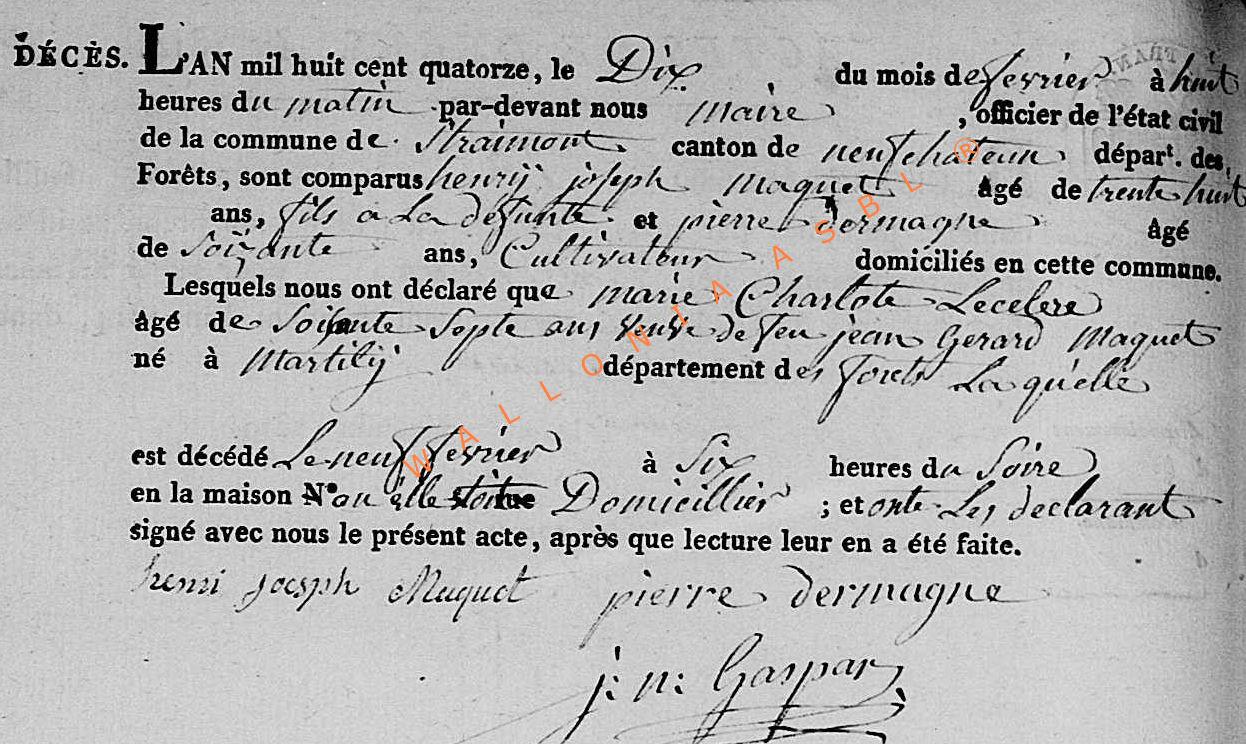 DÉCÈS. L'AN mil huit cent quatorze, le Dix du mois de fevrier à huit
heures du matin par-devant nous maire , officier de l'état civil
de la commune de Straimont canton de neufchateau départ. des
Forêts, sont comparus henrij joseph Maquet âgé de trente huit
ans, fils a La defunte et pierre Dermagne âgé
de Soixante ans, Cultivateur domiciliés en cette commune.
Lesquels nous ont déclaré que marie Charlote Leceler
âgé de Soisante Septe ans veuve de feu jean Gerard Maquet
né à Martilij département des forets Laquelle
est décédé Le neuf fevrier à Six heures du Soire
en la maison N° ou elle etoit Domicillier ; et onte Les declarant
signé avec nous le présent acte, après que lecture leur en a été faite.
henri joesph Maquet pierre dermagne
j: n: Gaspar
WALLONIA ASBL ®